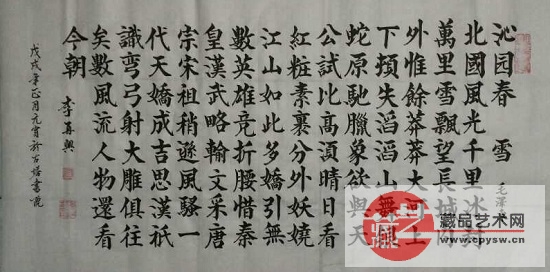 沁园春 雪
毛澤東
北國風光千里冰封
萬里雪飄望長城内
外惟餘莽莽大河上
下頓失滔滔山舞銀
蛇原馳臘象欲與天
公試比高須晴日看
紅粧素裹分外妖嬈
江山如此多嬌引無
數英雄竞折腰惜秦
皇漢武略輸文采唐
宗宋祖稍遜風騷一
代天嬌成吉思漢祇
識彎弓射大雕俱往
矣數風流人物還看
今朝
李再興
戊戌年正月元宵於古塔書
藏品艺术网
www.cpysw.cn